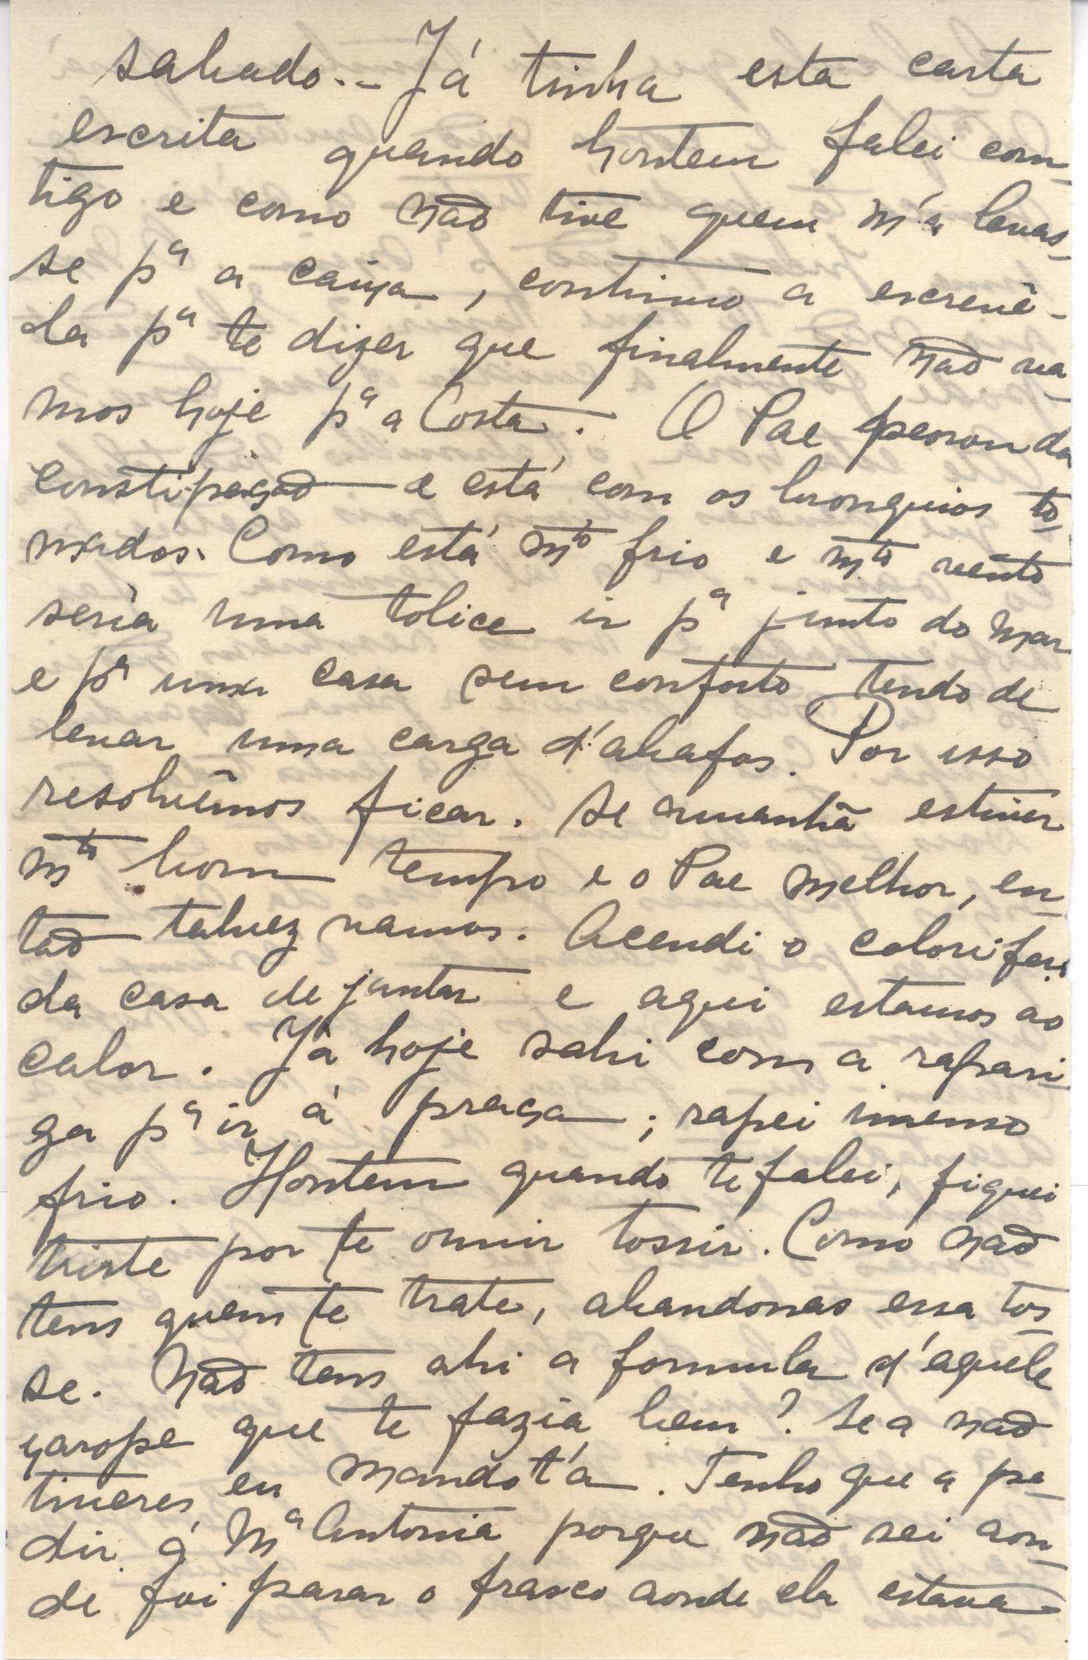 sabado.- Já tinha esta carta
escrita quando hontem falei com-
tigo e como não tive quem m'a levas-
se pª a caixa, continuo a escrevê-
la pª te dizer que finalmente não va-
mos hoje pª a Costa. O Pae peorou da
constipação e está com os bronquios to-
mados. Como está mto frio e mto vento
seria uma tolice ir pª junto do mar
e pª uma casa sem conforto tendo de
levar uma carga d'abafos. Por isso
resolvêmos ficar. Se amanhã estiver
mto bom tempo e o Pae melhor, en-
tão talvez vamos. Acendi o calorifero
da casa de jantar e aqui estamos ao
calor. Já hoje sahi com a rapari-
ga pª ir á praça; rapei imenso
frio. Hontem quando te falei, fiquei
triste por te ouvir tossir. Como não
tens quem te trate, abandonas essa tos-
se. Não tens ahi a formula d'aquele
xarope que te fazia bem? Se a não
tiveres, eu mando-t'a. Tenho que a pe-
dir á Mª Antonia porque não sei aon-
de foi parar o frasco aonde ela estava